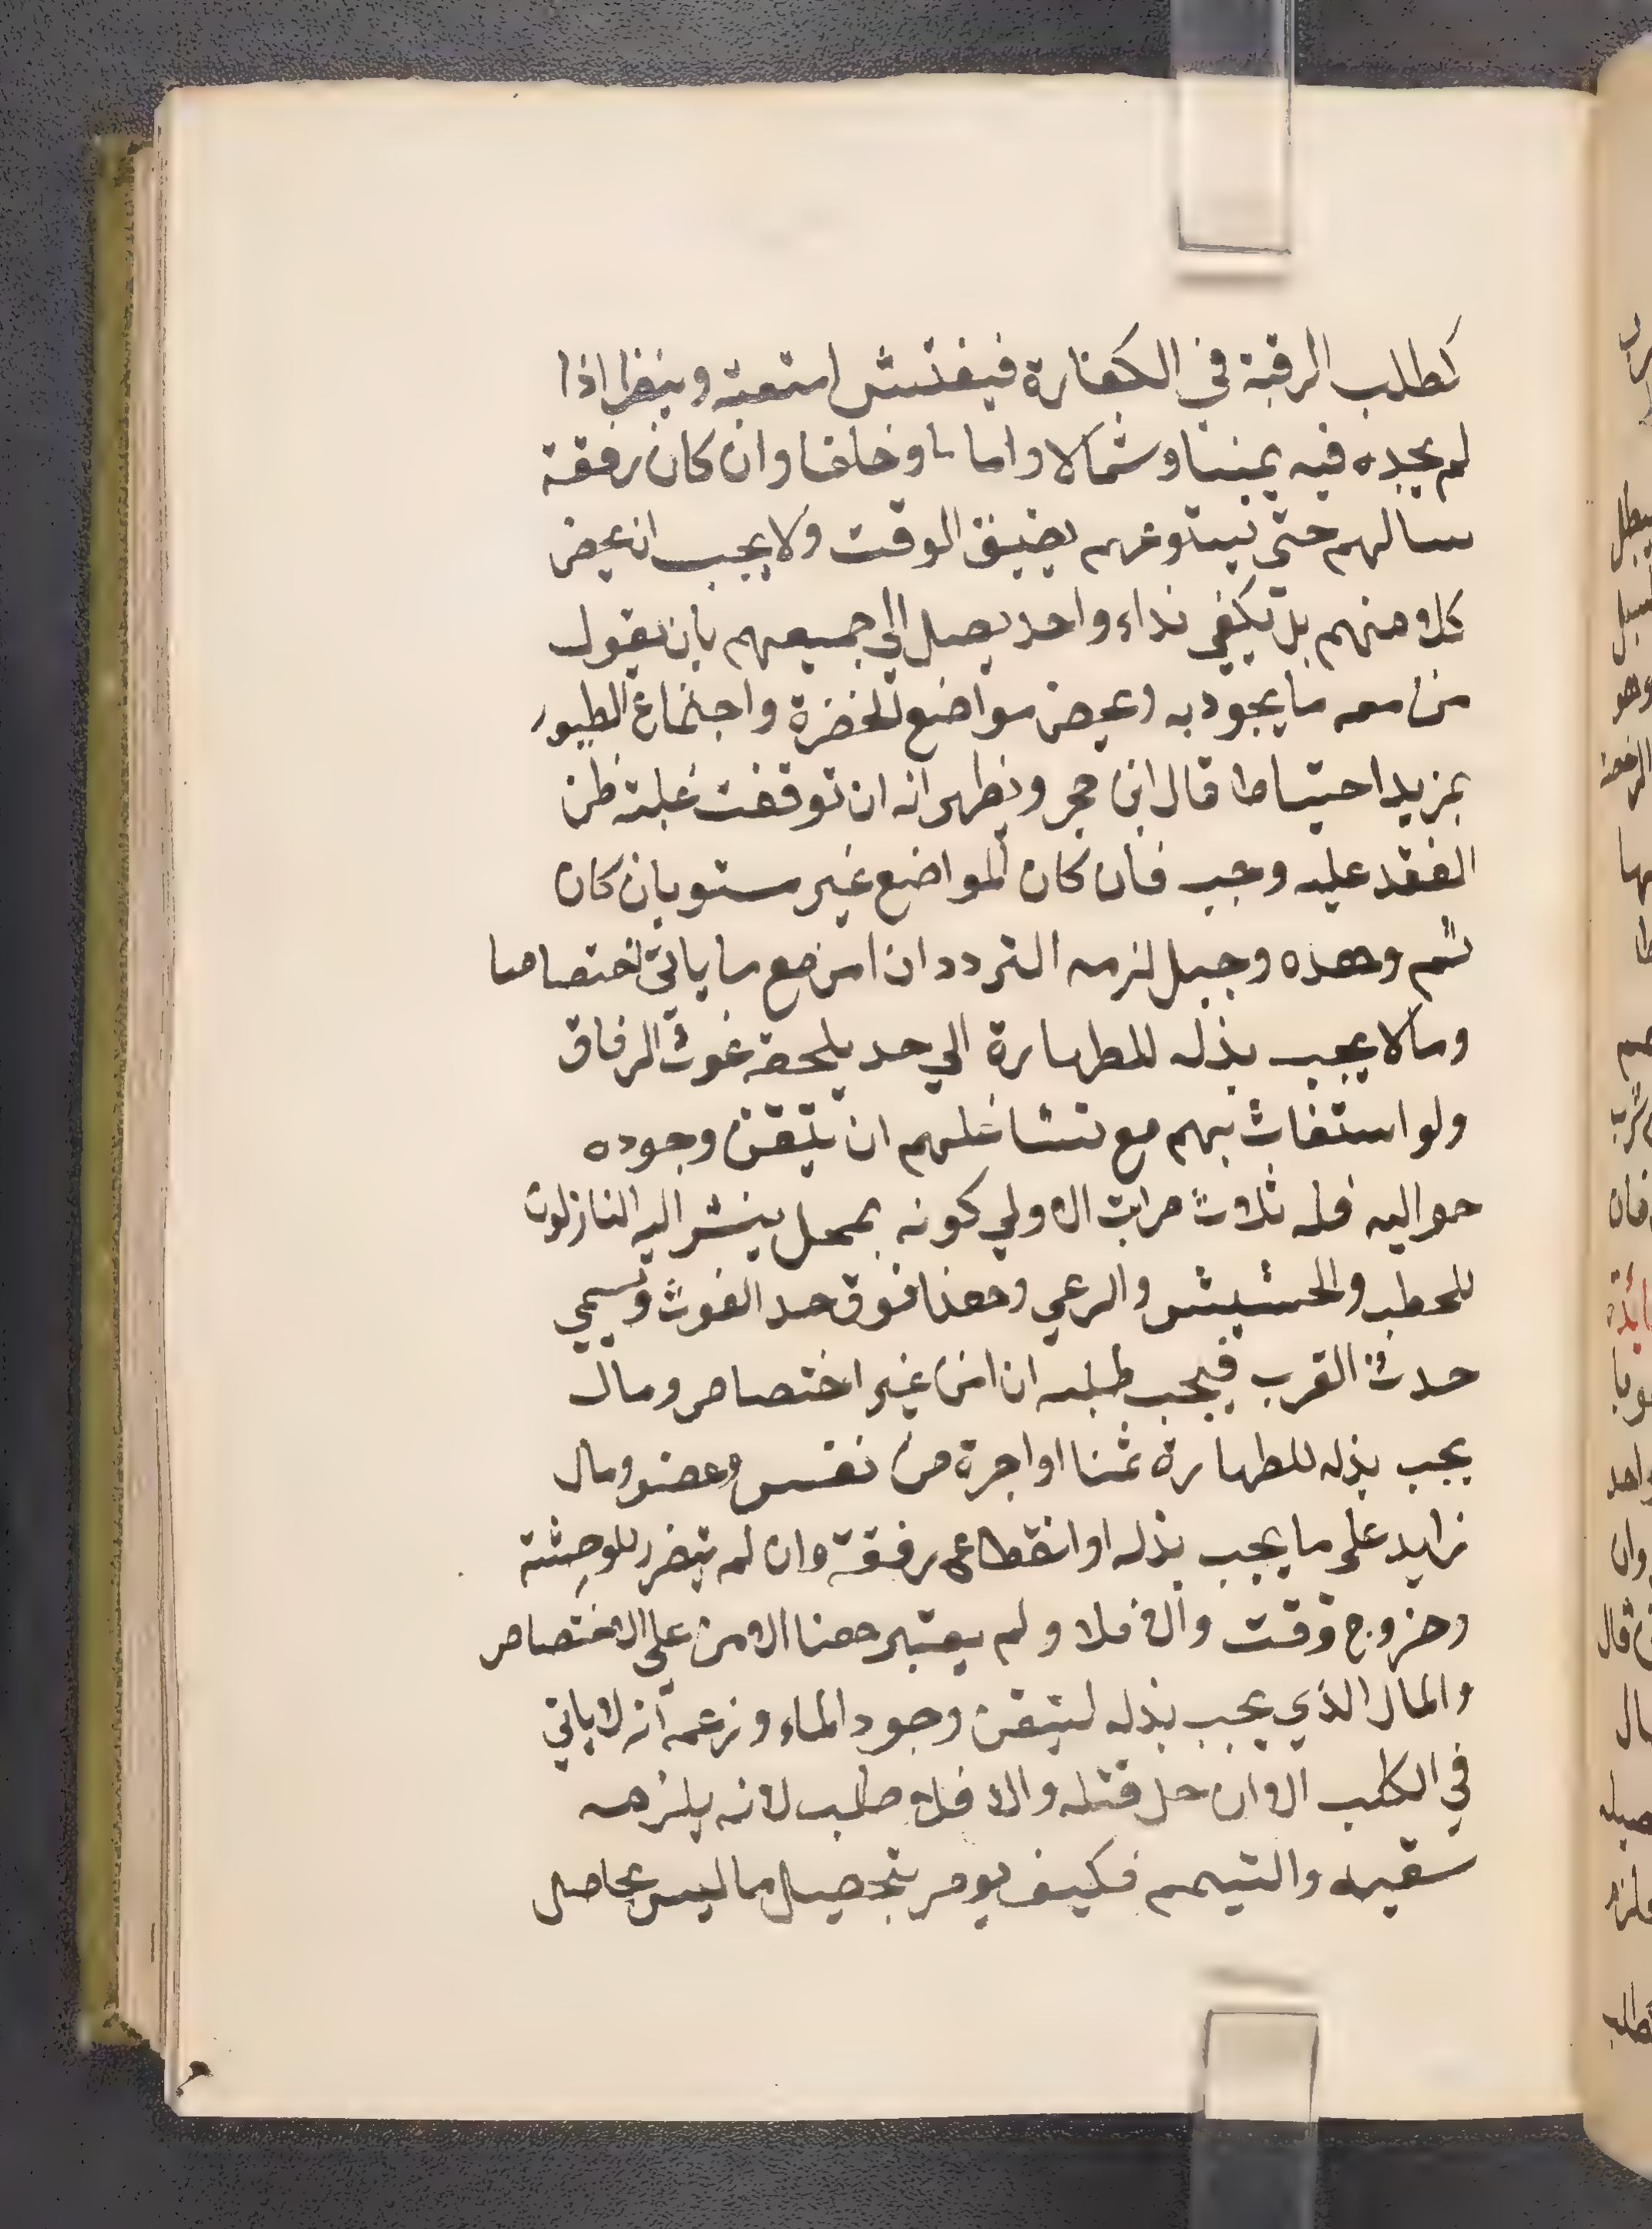 كطلب الرقبة في الكفارة فيفتش امتعته وينظر اذا
لم يجده فيه يمينا وشمالا واماما وخلفا وان كان رفقة
سالهم حتى يستوعبهم يضيق الوقت ولا يجب ان يخص
كلا منهم بل يكفي نداء واحد يصل الى جميعهم بان يقول
من معه ما يجود به ويخص مواضع الخضرة واجتماع الطيور
بمزيد احتياط قال ابن حجر ويظهر انه ان توقفت غلبة ظن
الفقد عليه وجب فان كان المواضع غير مستو بان كان
ثم وهده وجبل لزمه التردد ان امن مع ما ياتي اختصاصا
وما لا يجب بذله للطهارة الي حد يلحقه غوث الرفاق
ولو استغاث بهم مع تشاغلهم ان تيقن وجوده
حواليه فله ثلاث مراتب الاولي كونه بمحل ينتشر اليه النازلون
للحطب والحشيش والرعي وهذا فوق حد الغوث ويسمي
حد القرب فيجب طلبه ان امن غير اختصاص ومال
يجب بذله للطهارة ثمنا او اجرة من نفس وعضو ومال
زايد على ما يجب بذله او انقطاع رفقة وان لم يتضرر للوحشة
وخروج وقت والا فلا ولم يعتبر هنا الامن على الاختصاص
والمال الذي يجب بذله لتيقن وجود الماء وزعمه انه لا ياتي
في الكلب الا ان حل قتله والا فلا طلب لانه يلزمه
سقيه والتيمم فكيف يومر بتحصيل ما ليس بحاصل